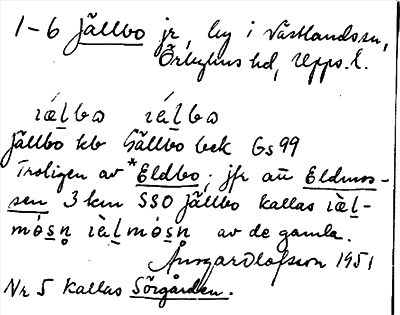 1-6 Jällbo jr, by i Västlandssn,
Örbyhus hd, Upps. l.
ıǽl̠bω ıǽl̠bω
Jällbo kb Gällbo bek Gs 99
Troligen av *Eldbo, jfr att Eldmos-
sen 3 km SSO Jällbo kallas ıæ̀l̠-
mósn̥ ıæ̀l̠mósn̥ av de gamla.
Ansgar Olofsson 1951
Nr 5 kallas Sörgården.